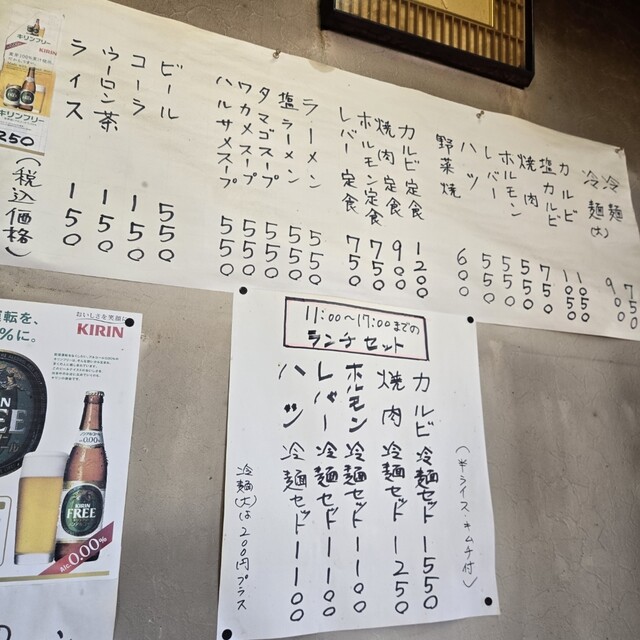 冷麺 750
冷麺(大)
カルビ 1050
塩カルビ 1050
焼肉 750
ホルモン 550
レバー 550
ハツ 550
野菜焼 600
カルビ定食 1200
焼肉定食 900
ホルモン定食 750
レバー定食 750
ラーメン 550
塩ラーメン 550
タマゴスープ 550
ワカメスープ 550
ハルサメスープ 550
ビール 550
コーラ 150
ウーロン茶 150
ライス 150
(税込価格)
キリンフリー
KIRIN
キリンフリー
250
11:00〜17:00までの
ランチセット
(半ライス・キムチ付)
カルビ冷麺セット 1550
焼肉冷麺セット 1250
ホルモン冷麺セット 1100
レバー冷麺セット 1100
ハツ冷麺セット 1100
冷麺(大)は200円プラス
転を、
%に。
おいしさを笑顔に
KIRIN
FREE
0.00%
KIRIN
FREE
alc.0.00%